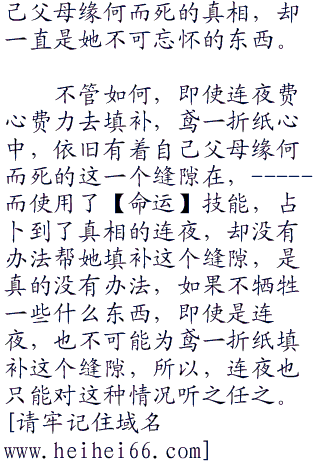 己父母缘何而死的真相，却
一直是她不可忘怀的东西。
不管如何，即使连夜费
心费力去填补，鸢一折纸心
中，依旧有着自己父母缘何
而死的这一个缝隙在，-----
而使用了【命运】技能，占
卜到了真相的连夜，却没有
办法帮她填补这个缝隙，是
真的没有办法，如果不牺牲
一些什么东西，即使是连
夜，也不可能为鸢一折纸填
补这个缝隙，所以，连夜也
只能对这种情况听之任之。
[请牢记住域名
www.heihei66.com]